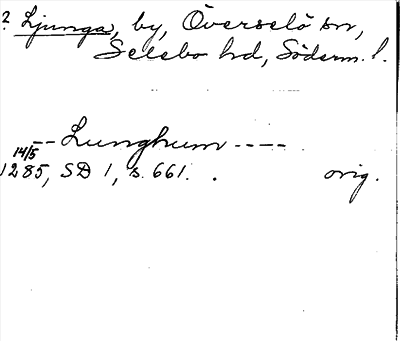 ? Ljunga, by, Överselö sn,
Selebo hd, Söderm. l.
-- Lunghum ----
14/5
1285, SD 1, s. 661. . orig.